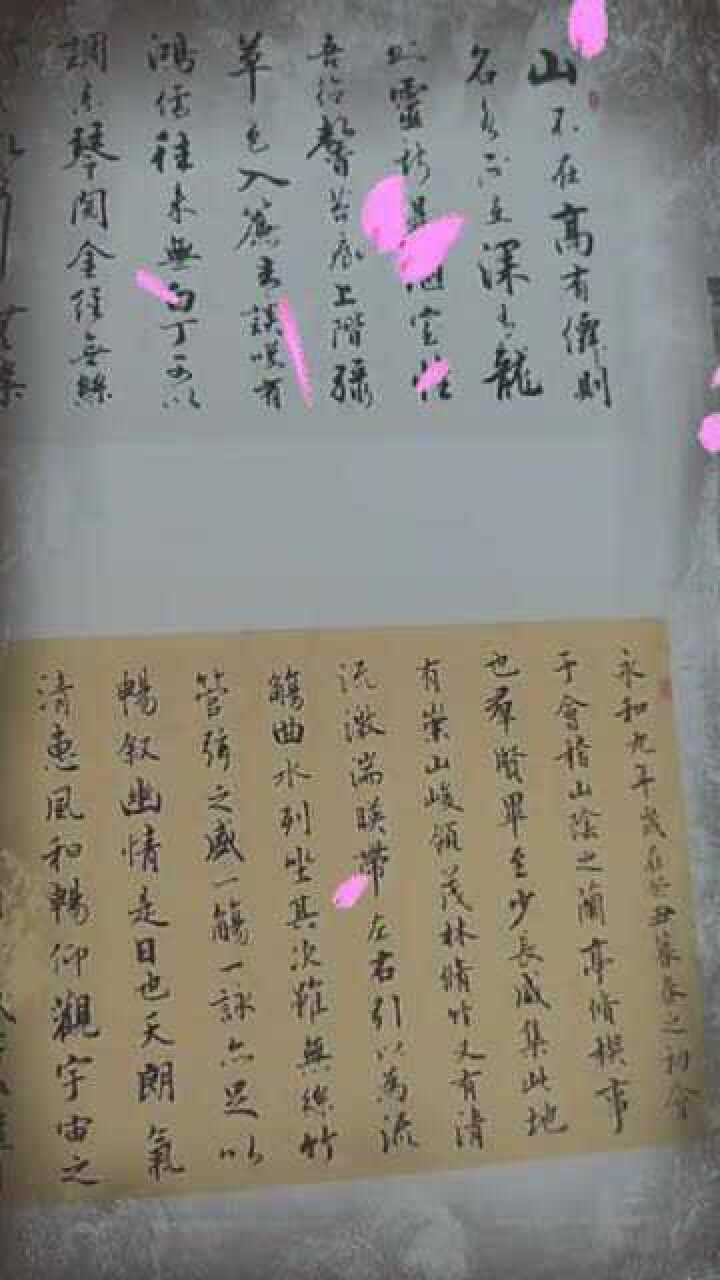 山不在高有僊則
名水不在深有龍
則靈斯是陋室惟
吾德馨苔痕上階緑
草色入簾青談笑有
鴻儒往来無白丁可以
調素琴閱金經無絲
永和九年歲在癸丑暮春之初會
于會稽山陰之蘭亭脩禊事
也羣賢畢至少長咸集此地
有崇山峻領茂林脩竹又有清
流激湍暎帶左右引以為流
觴曲水列坐其次雖無絲竹
管弦之盛一觴一詠亦足以
暢叙幽情是日也天朗氣
清惠風和暢仰觀宇宙之